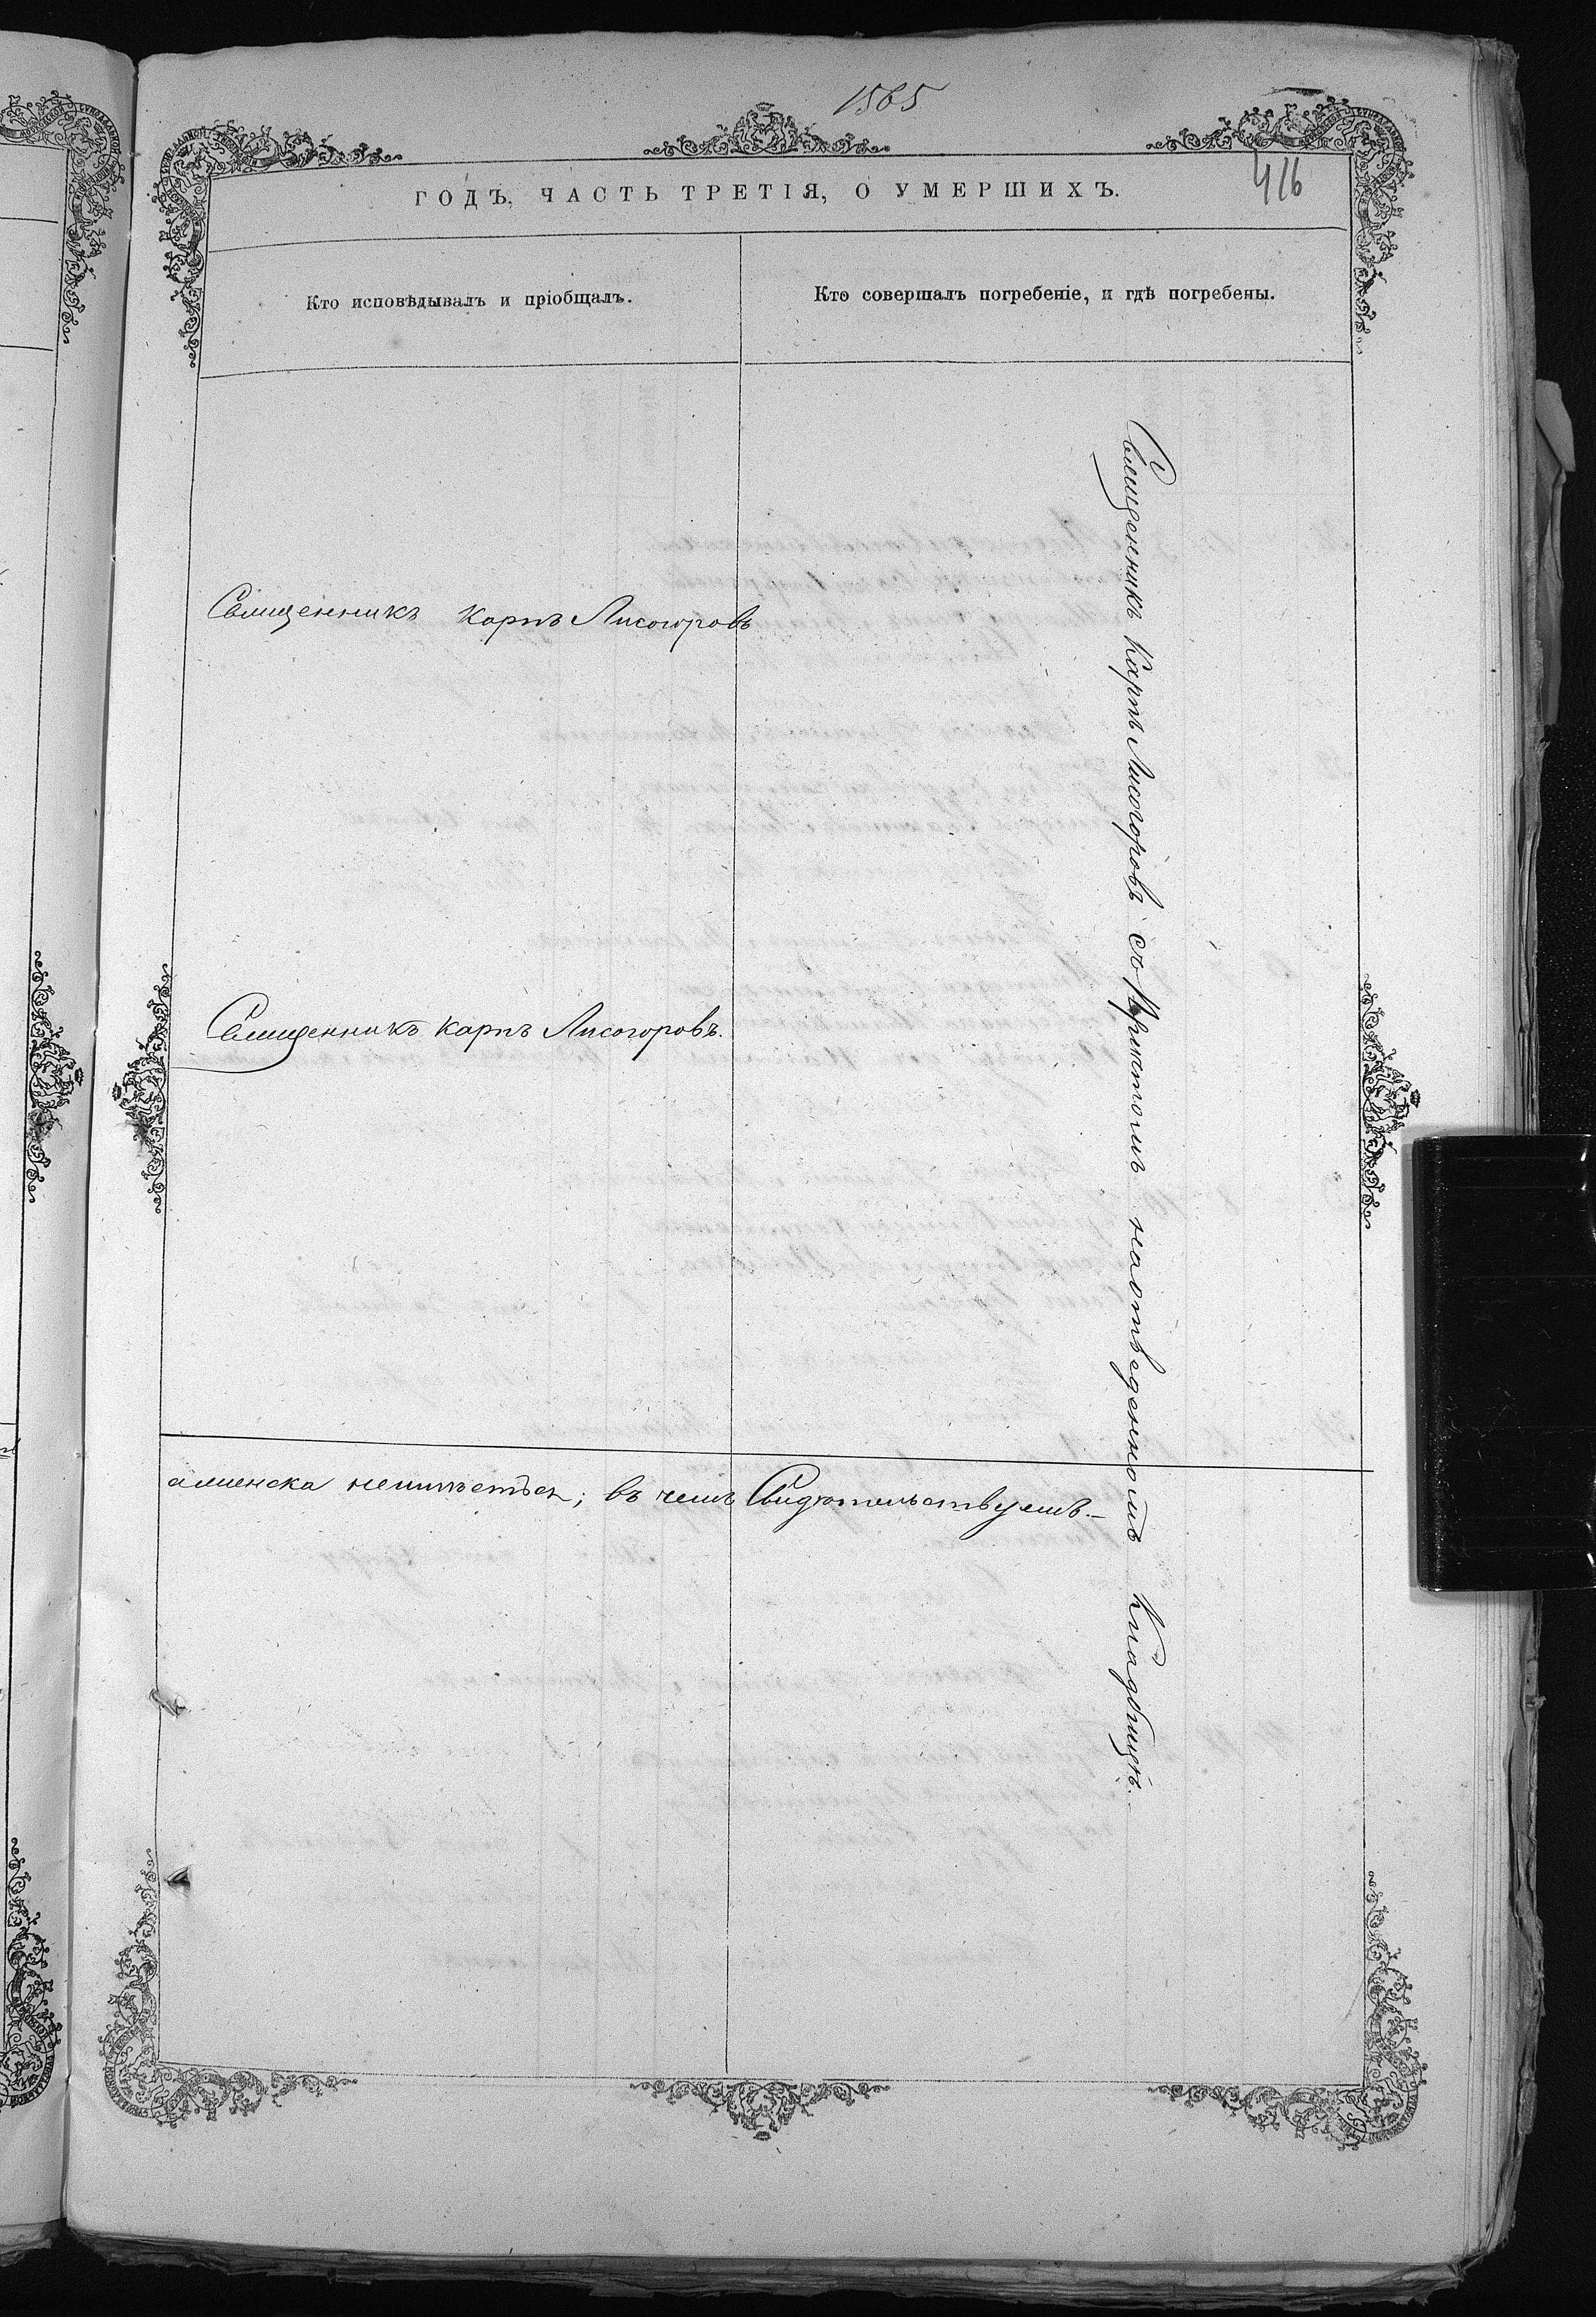 1565
416
ГОДЪ, ЧАСТЬ ТРЕТІЯ, О УМЕРШИХЪ.
Кто исповѣдывалъ и пріобщалъ.
Кто совершалъ погребеніе, и гдѣ погребены.
Священникъ Карпъ Лисогоровъ
Священникъ Карпъ Лисогоровъ.
Священникъ Карпъ Лисогоровъ съ Причтомъ на отведенномъ Кладбищѣ.
неимѣется; въ чемъ Свидѣтельствуемъ.-